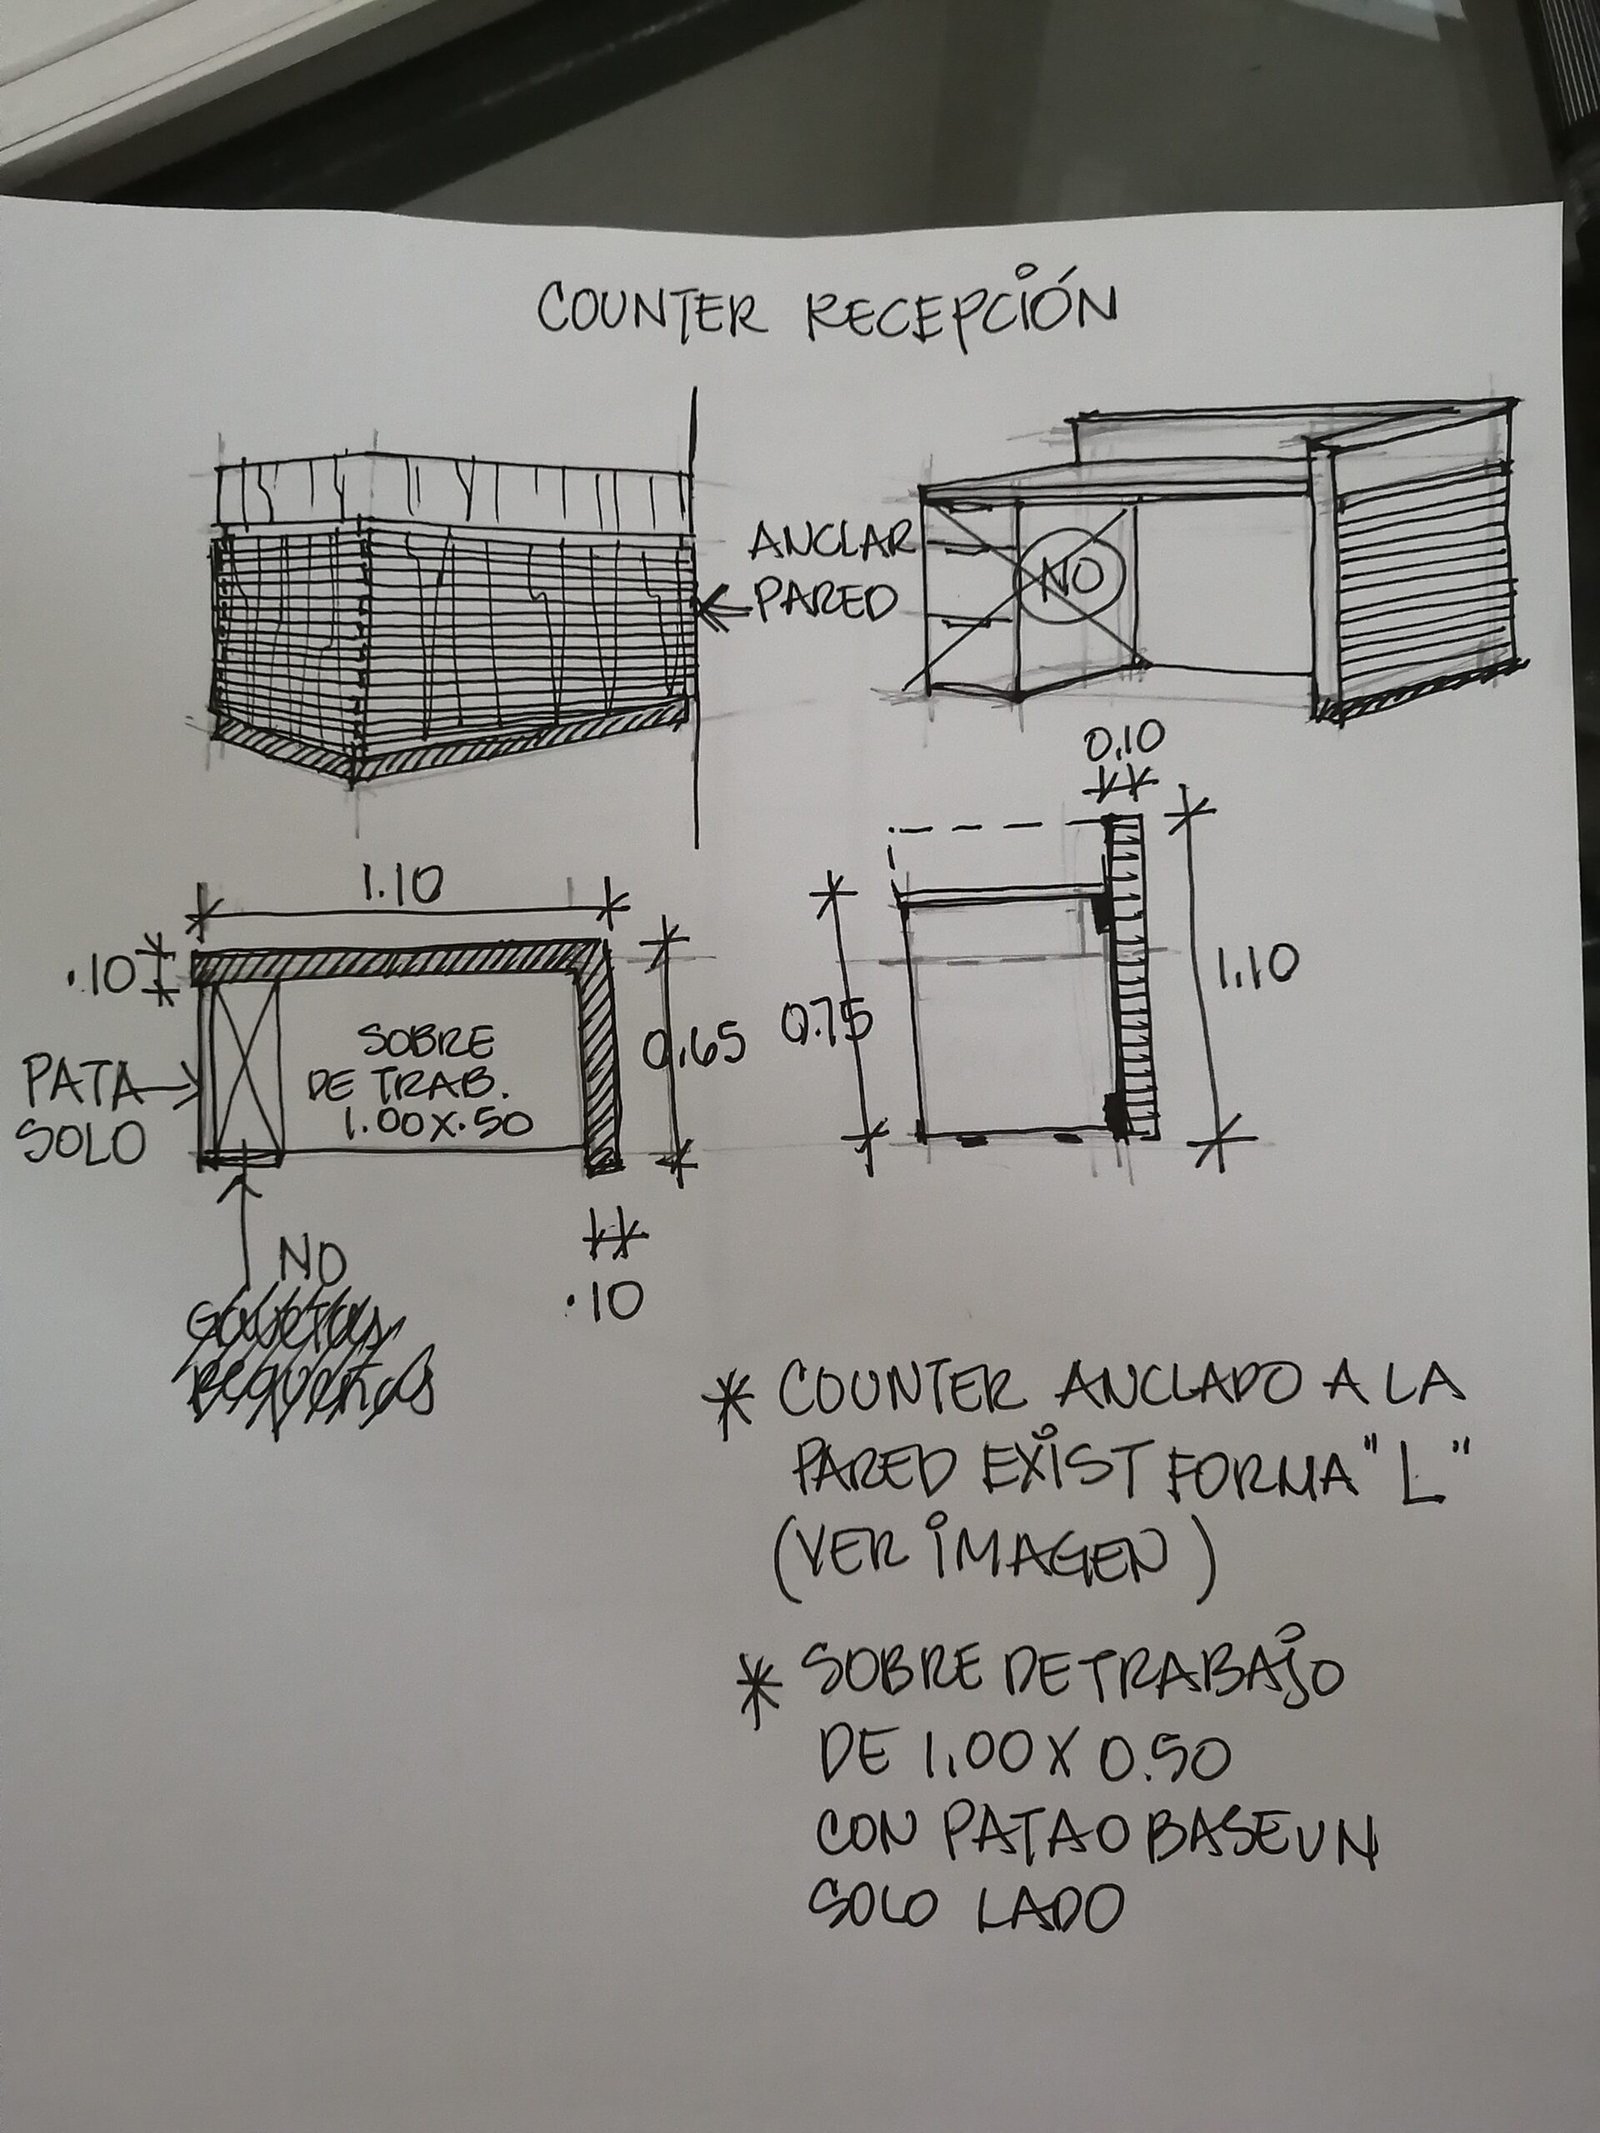 COUNTER RECEPCIÓN
ANCLAR
PARED
NO
0.10
1.10
.10
SOBRE
DE TRAB.
1.00X.50
0.65
0.75
1.10
PATA
SOLO
NO
Gavetas
Pequeñas
.10
* COUNTER ANCLADO A LA
PARED EXIST FORMA "L"
(VER IMAGEN)
* SOBRE DE TRABAJO
DE 1.00 X 0.50
CON PATA O BASE UN
SOLO LADO